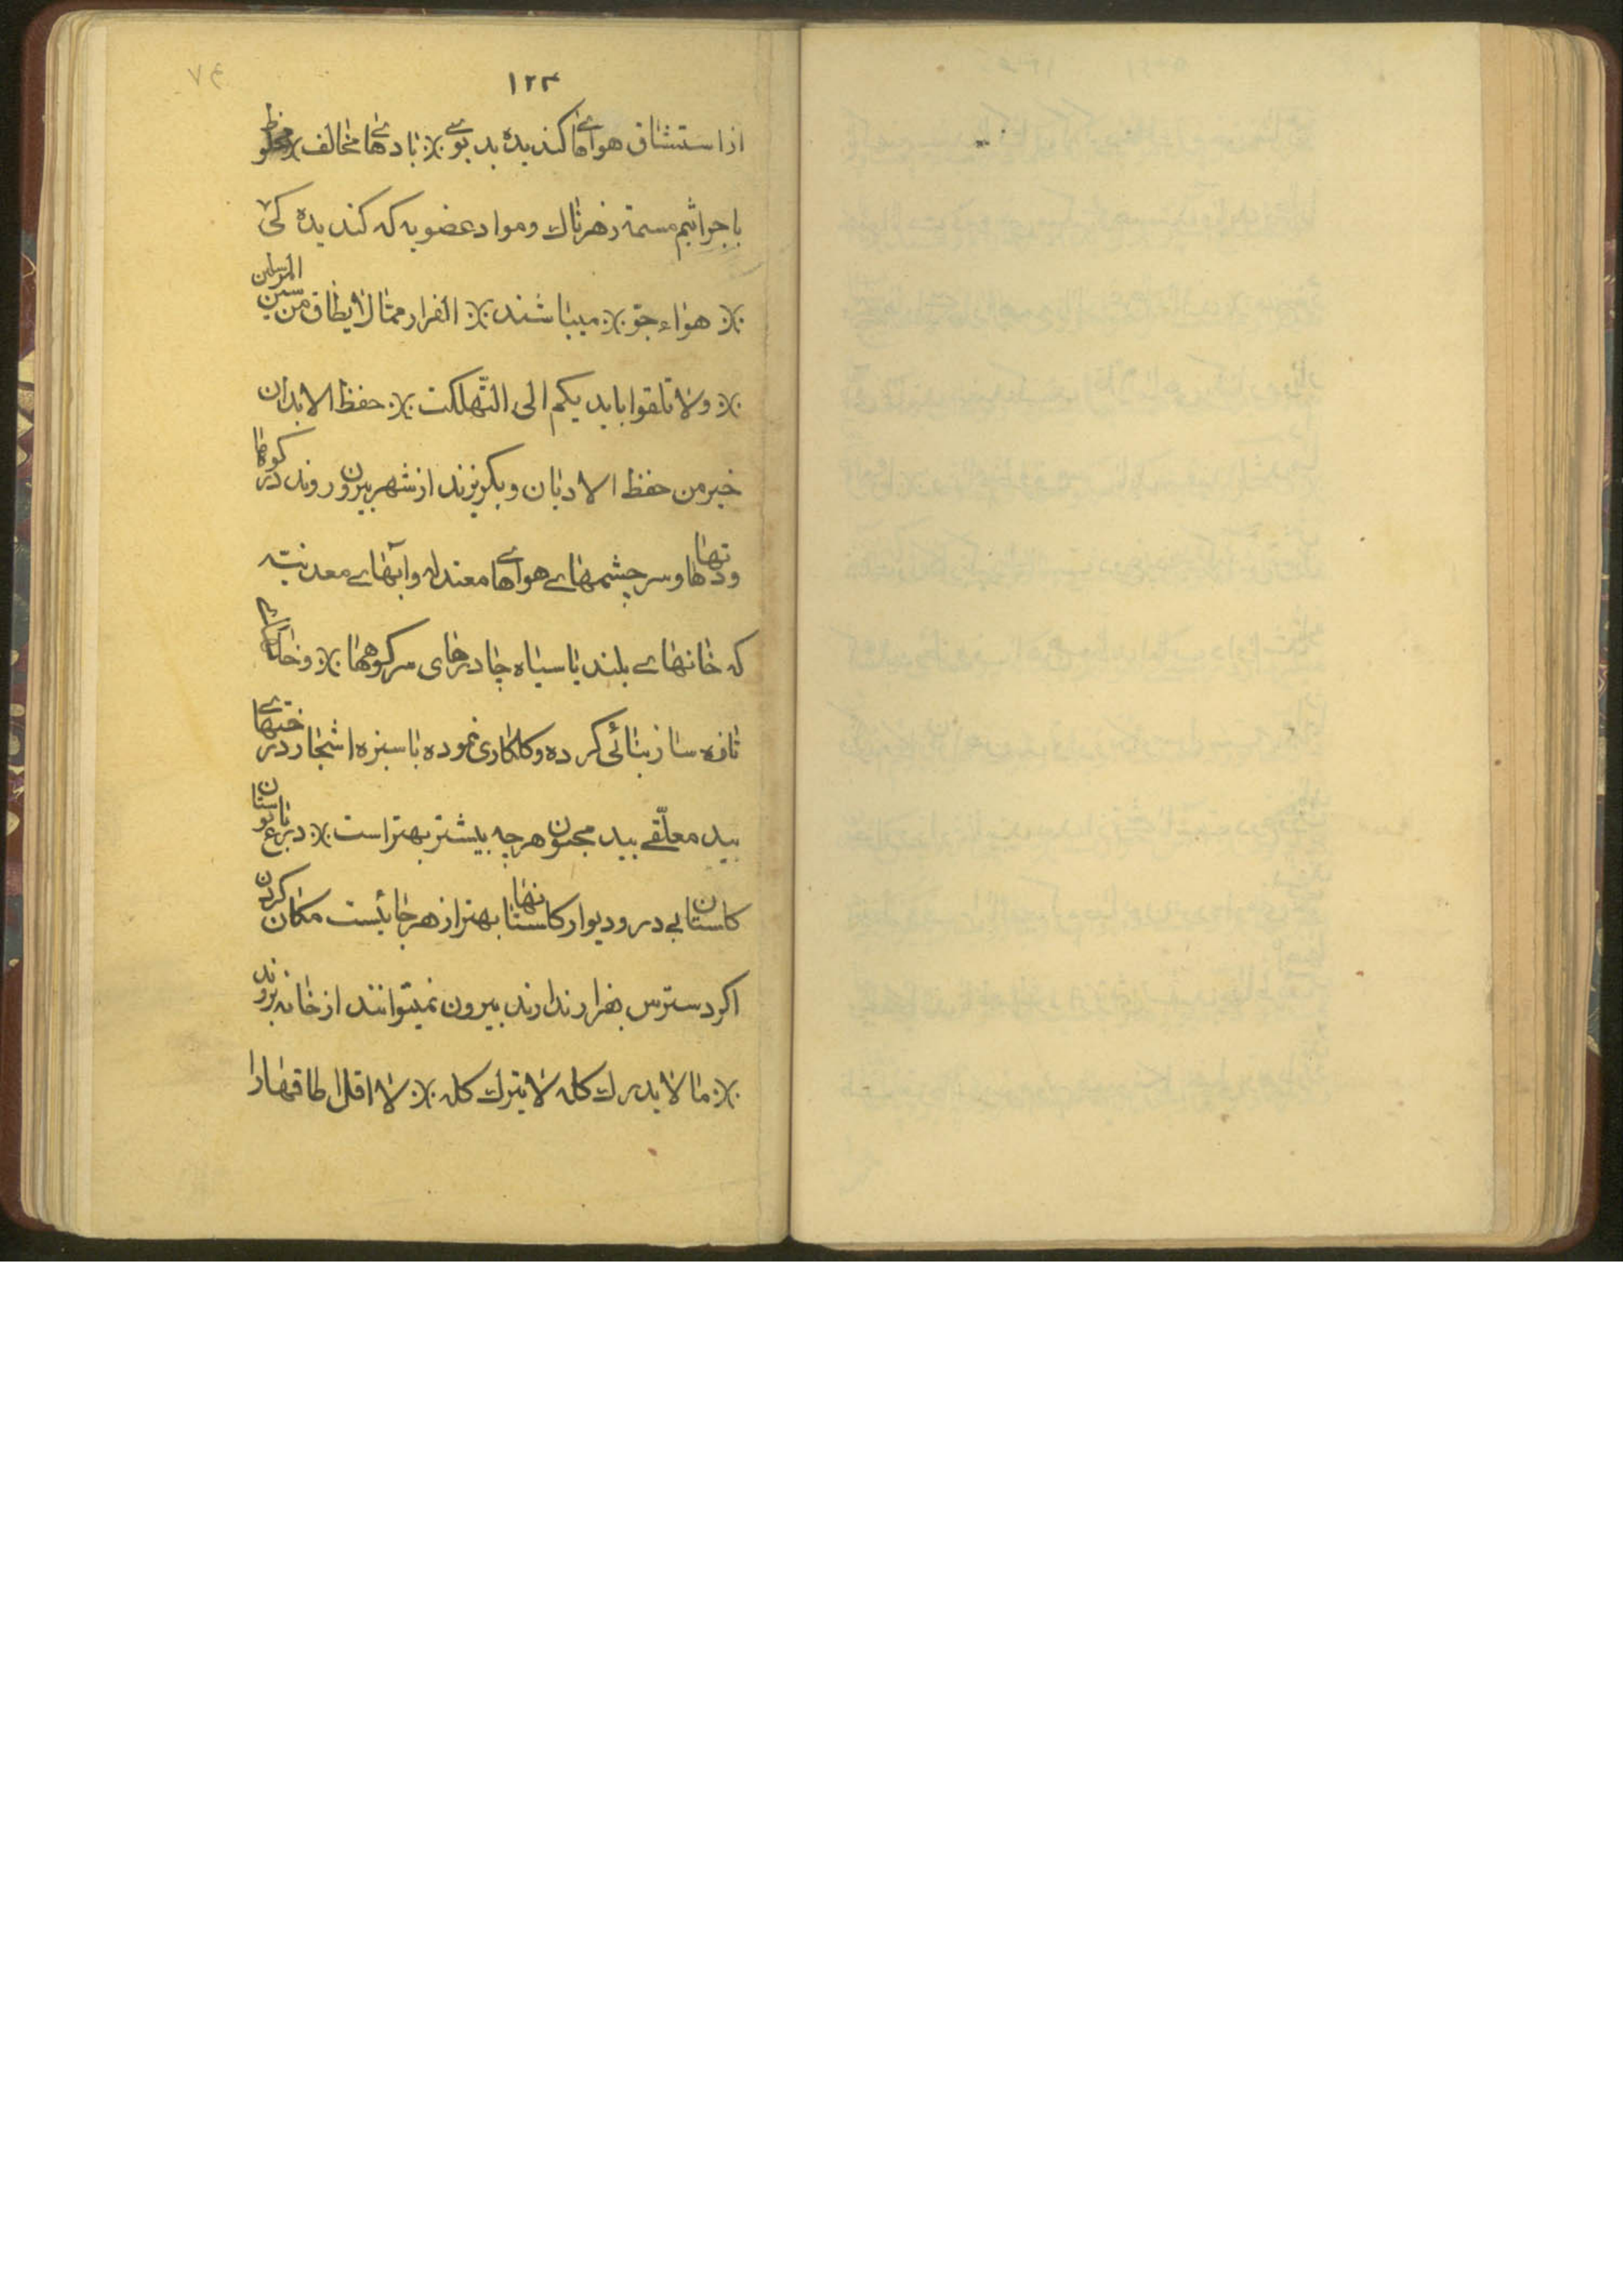 ۱۲۳
از استنشاق هواهای کندیده بدبوی ٪ بادهای مخالف ٪ مخلوط
با جراثیم مسمه زهرناك و مواد عضویه که کندیده کی
٪ هواء جو ٪ میباشند ٪ الفرار ممالایطاق من سنن المرسلین
٪ ولا تلقوا بایدیکم الی التهلکت ٪ حفظ الابدان
خیر من حفظ الادیان و بکریزند از شهر بیرون روند در کوهها
و دهاتها و سرچشمهای هواهای معتدله و آبهای معدنیه
که خانهای بلند یا سیاه چادرهای سر کوهها ٪ و
تازه ساز بنائی کرده و کلکاری نموده با سبزه اشجار درختهای
بید معلقی بید مجنون هرچه بیشتر بهتر است ٪ در باغ بوستان
کاستان بی در و دیوار کاستانها بهتر از هرجائیست مکان کردن
اکر دسترس بفرار ندارند بیرون نمیتوانند از خانه بروند
٪ ما لا یدرك کله لا یترك کله ٪ لا اقل اطاقهارا